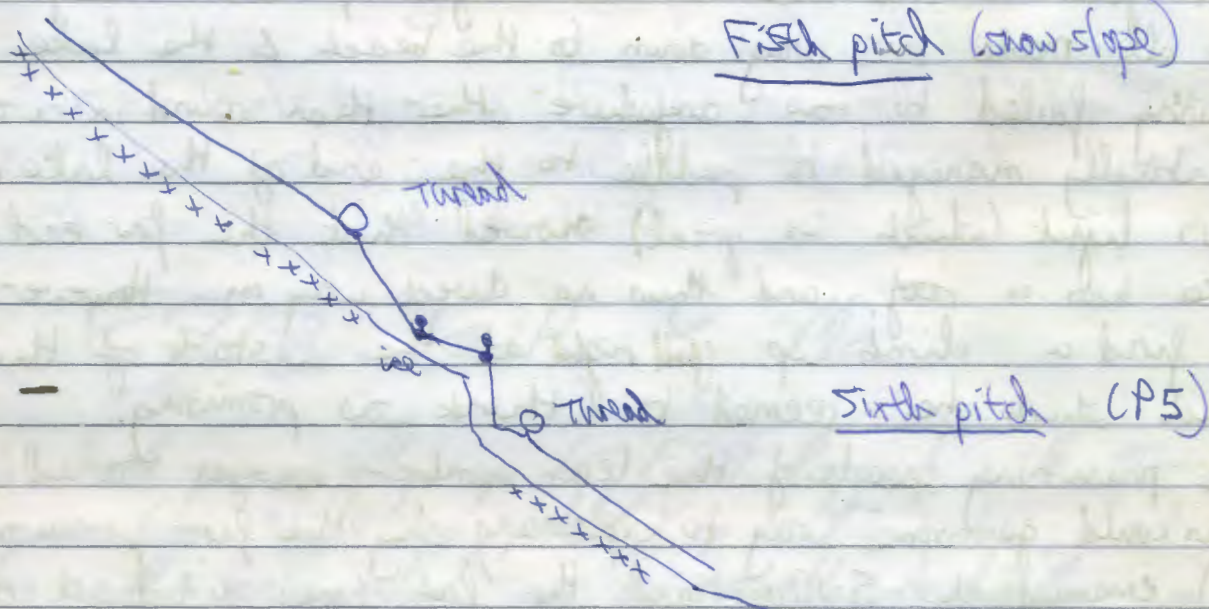 Fifth pitch (snow slope)
Thread
ice
Thread
Sixth pitch (P5)